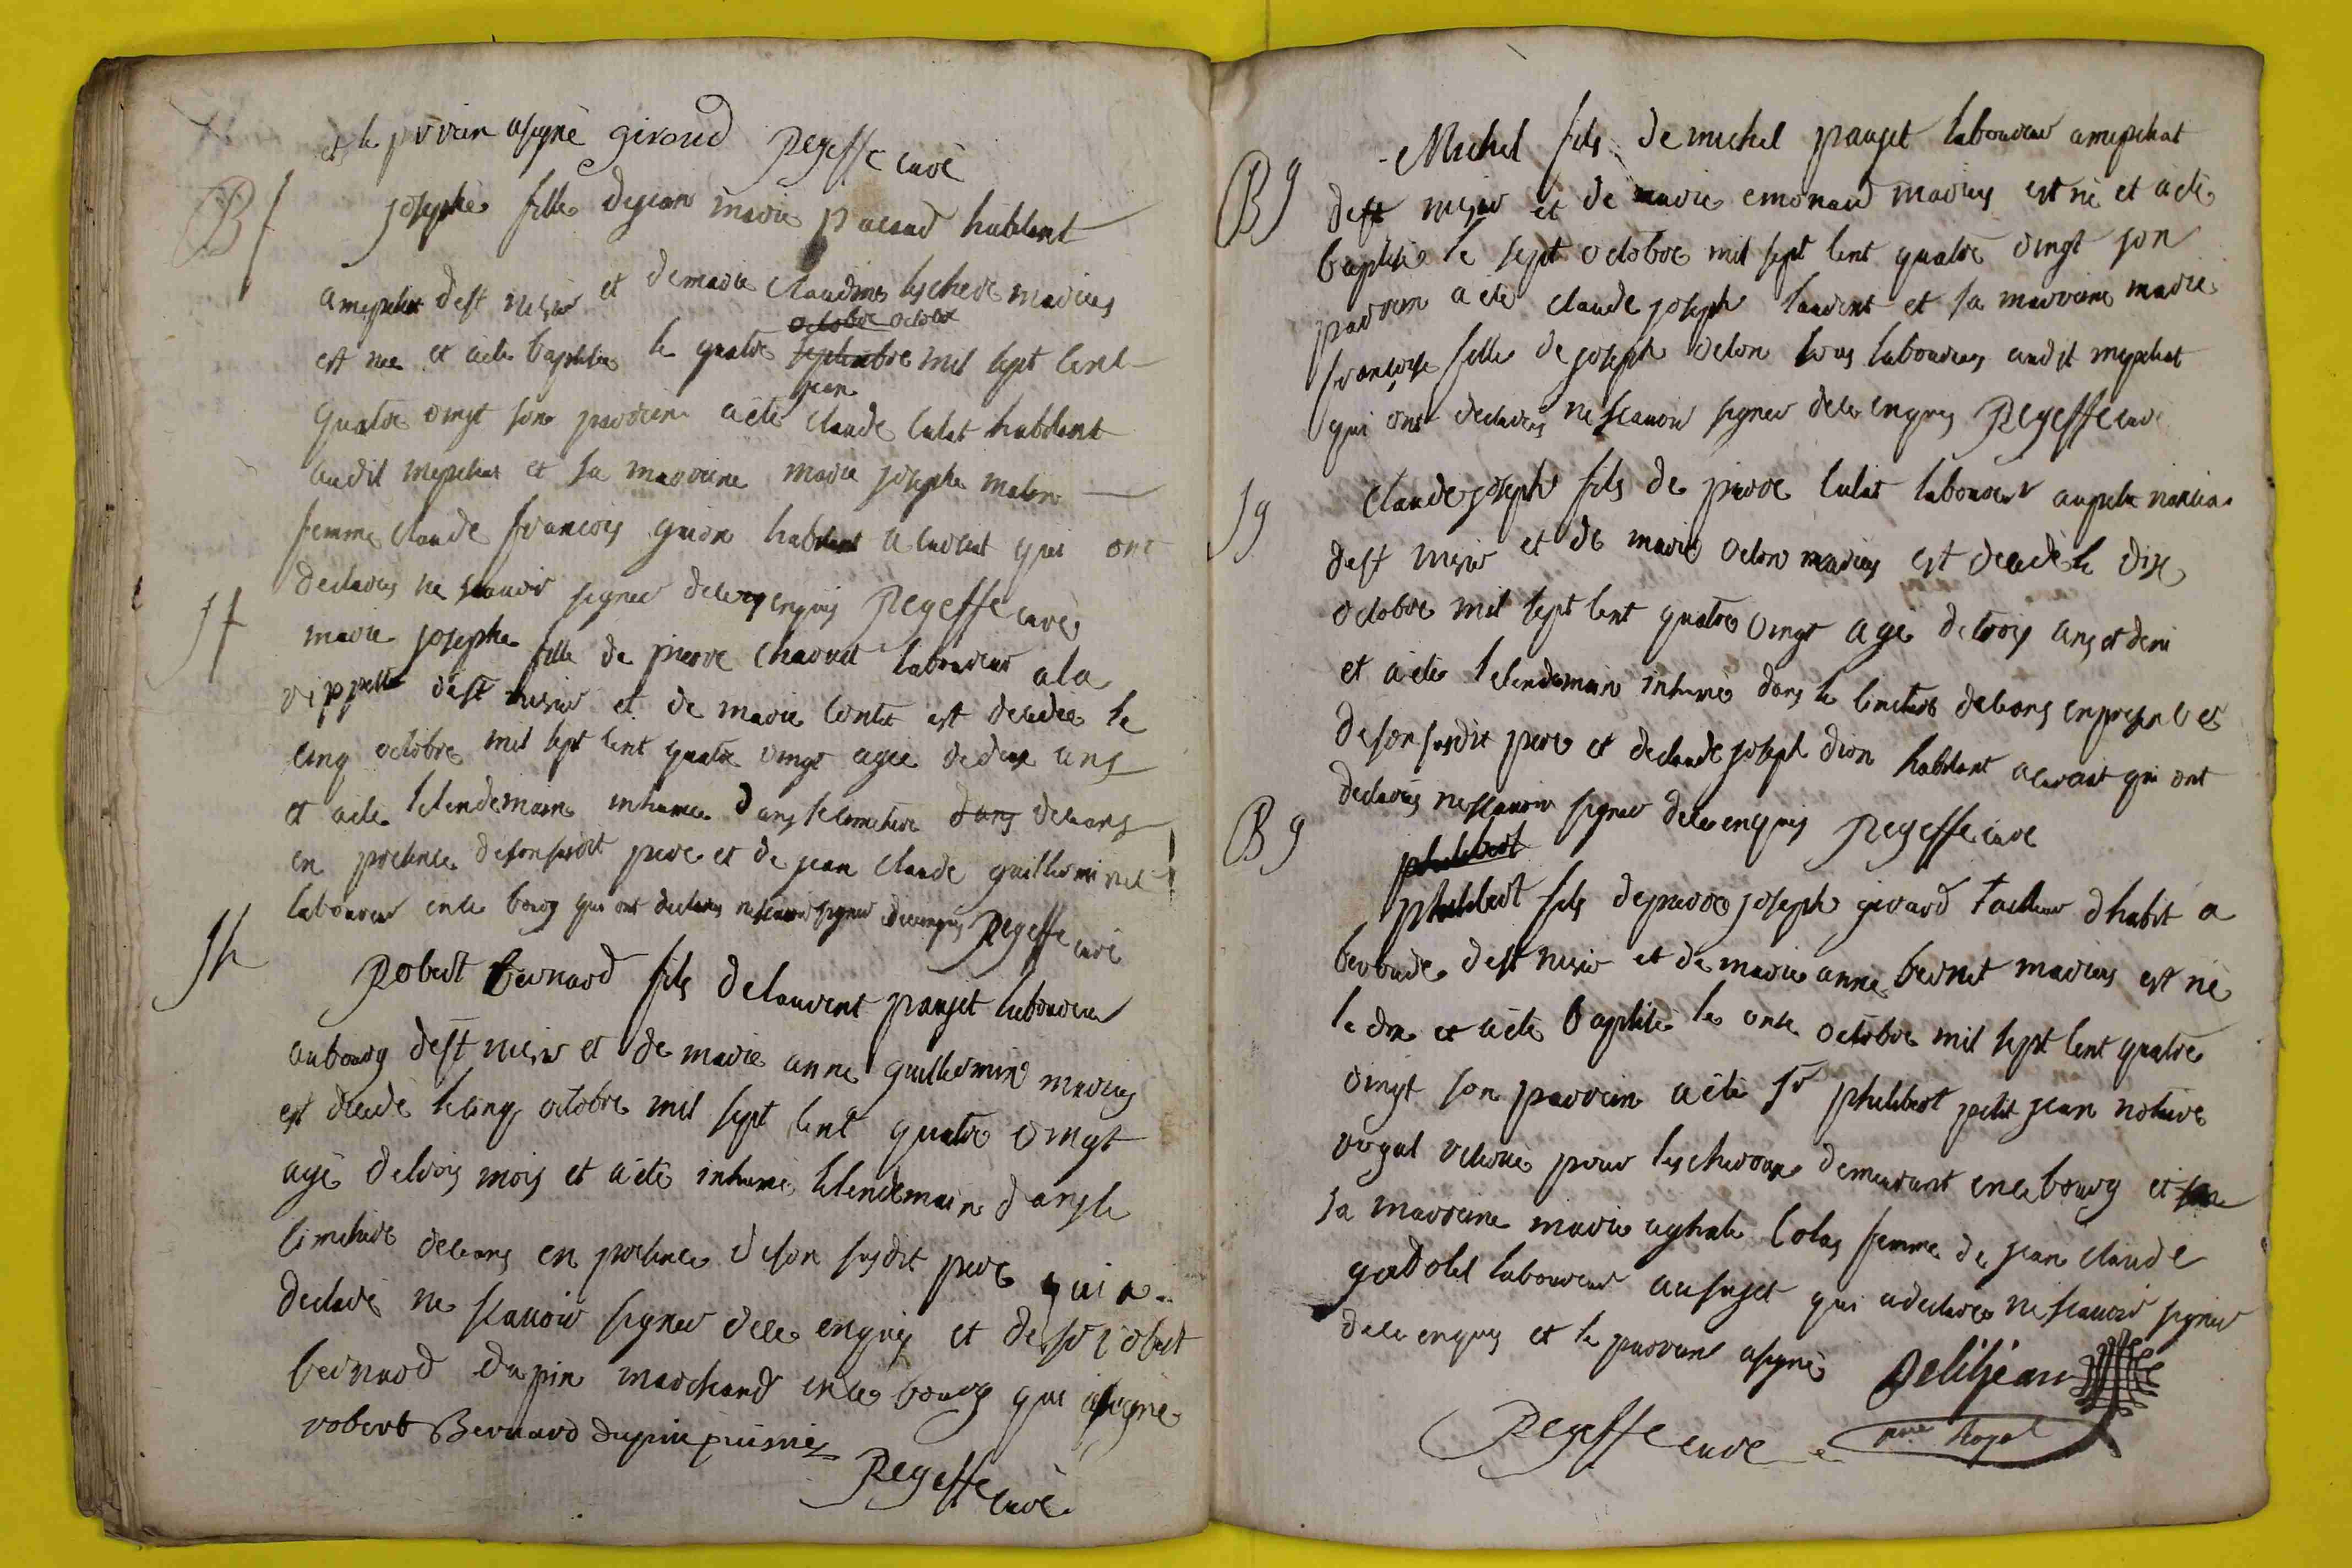 et le parrain a signé giroud Regeffe curé
Bf
josephe fille de jean marie pacoud habitant
a mepillat dest nizier et de marie claudine leschere mariés
octobre octobre
est née et a été baptisée le quatre septembre mil sept cent
jean
quatre vingt son parrain a été claude culat habitant
audit mepillat et sa marraine marie josephe maton
femme claude francois guion habitant a curciat qui ont
declarés ne scavoir signer de ce enquis Regeffe curé
sf
marie josephe fille de pierre chaout laboureur a la
rippette dest nizier et de marie contet est decedée le
cinq octobre mil sept cent quatre vingt agée de deux ans
et a été le lendemain inhumée dans le cimetiere dans deceans
en presence de son susdit pere et de jean claude guillerminet
laboureur en ce bourg qui ont declarés ne scavoir signer de ce enquis Regeffe curé
sh
Robert bernard fils de laurent pauget laboureur
au bourg dest nizier et de marie anne guillermin mariés
est decedé le cinq octobre mil sept cent quatre vingt
agé de trois mois et a été inhumé le lendemain dans le
cimetiere deceans en presence de son susdit pere qui a
declaré ne scavoir signer de ce enquis et de sr robert
bernard dupin marchand en ce bourg qui a signé
robert Bernard dupin puisné
Regeffe curé
Bg
Michel fils de michel pauget laboureur a mepillat
dest nizier et de marie emonard mariés est né et a été
baptisé le sept octobre mil sept cent quatre vingt son
parrain a été claude joseph laurent et sa marraine marie
francoise fille de joseph velon tous laboureurs audit mepillat
qui ont declarés ne scavoir signer de ce enquis Regeffe curé
sg
Claude joseph fils de pierre culat laboureur
dest nizier et de marie velon mariés est decedé le dix
octobre mil sept cent quatre vingt agé de trois ans et demi
et a été le lendemain inhumé dans le cimetiere deceans en presence et
de son susdit pere et de claude joseph dion habitant a curciat qui ont
declarés ne scavoir signer de ce enquis Regeffe curé
Bg
philibert
philibert fils de pierre joseph girard tailleur dhabit a
dest nizier et de marie anne bernet mariés est né
le dix et a été baptisé le onze octobre mil sept cent quatre
vingt son parrain a été sr philibert petit jean notaire
royal reservé pour les cheroux demeurant en ce bourg et sa
sa marraine marie aghate colas femme de jean claude
gadolet laboureur au sujet qui a declaré ne scavoir signer
de ce enquis et le parrain a signé Petitjean
Regeffe curé nre Royal